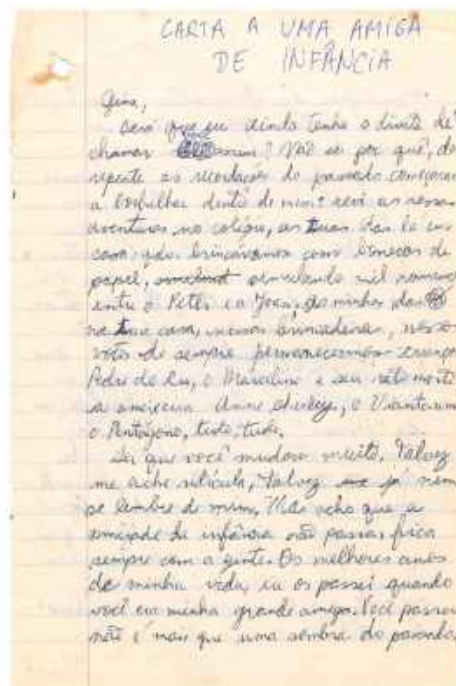 CARTA A UMA AMIGA
DE INFÂNCIA
Gina,
Será que eu ainda tenho o direito de
chamar assim? Não sei por quê, de
repente as recordações do passado começaram
a borbulhar dentro de mim: revi as nossas
aventuras no colégio, as tuas idas lá em
casa, qdo. brincávamos com bonecas de
papel, simulando mil romances
entre o Peter e a Joan, as minhas idas
na tua casa, nossas brincadeiras, nossos
votos de sempre permanecermos crianças
Pedro do Rio, o Marcelino e seu
a Anne Shirley, o
o Pentágono, tudo, tudo.
Sei que você mudou muito, talvez
me ache ridícula, talvez já nem
se lembre de mim. Mas acho que a
amizade de infância não passa, fica
sempre com a gente. Os melhores anos
de minha vida, eu os passei quando
você era minha grande amiga. Você passou
não é mais que uma sombra do passado.